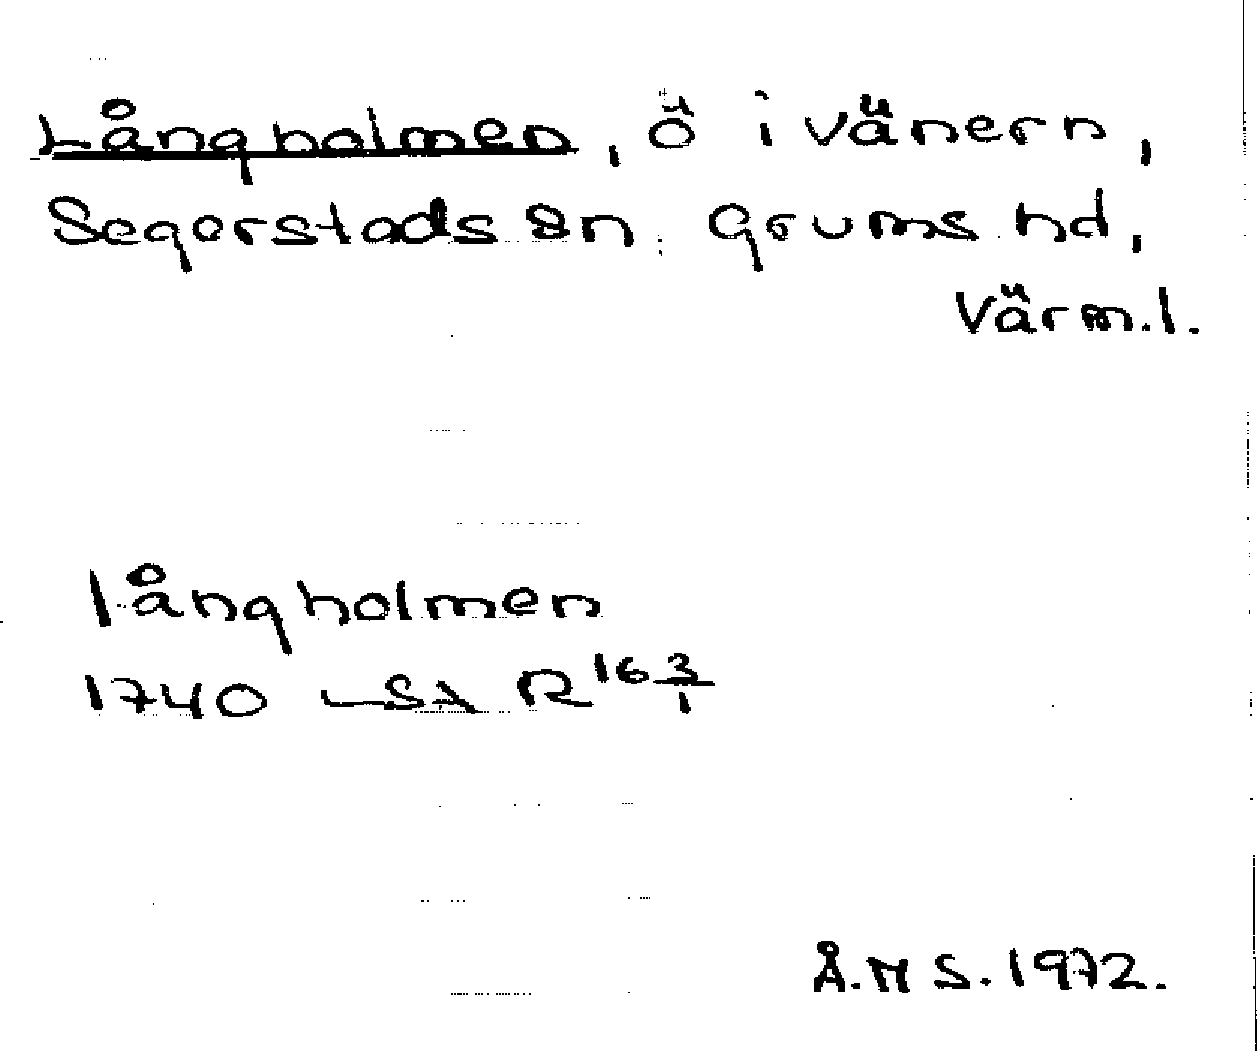 Långholmen, Ö i Vänern,
Segerstads sn. Grums hd,
Värml.
långholmen
1740 LSA R 16 3/1
Å.M S. 1972.